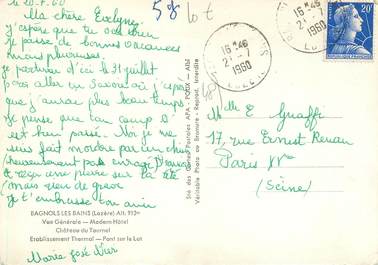 le 20-7-60
Ma chère Evelyne
j'espère que tu vas bien
je passe de bonnes vacances
mais pluvieuses.
je partirai d'ici le 31 juillet
pour aller en Savoie où j'espère
que j'aurai plus beau temps
je pense que ton camp
s'est bien passé. Moi je me
suis fait mordre par un chien
(heureusement pas enragé)
reçu une pierre sur la tête
(mais rien de grave
je t'embrasse ton amie
BAGNOLS LES BAINS (Lozère) Alt: 913m
Vue Générale — Modern Hôtel
Château du Tournel
Etablissement Thermal — Pont sur le Lot
Marie José
58
lot
Sté des Cartes Postales APA - POUX - Albi
Véritable Photo au Bromure - Reprod. Interdite
16 H 45
1960
LOZERE
16 H 45
1960
20F
Mlle E Graffi
17, rue Ernest Renan
Paris XVe
(Seine)